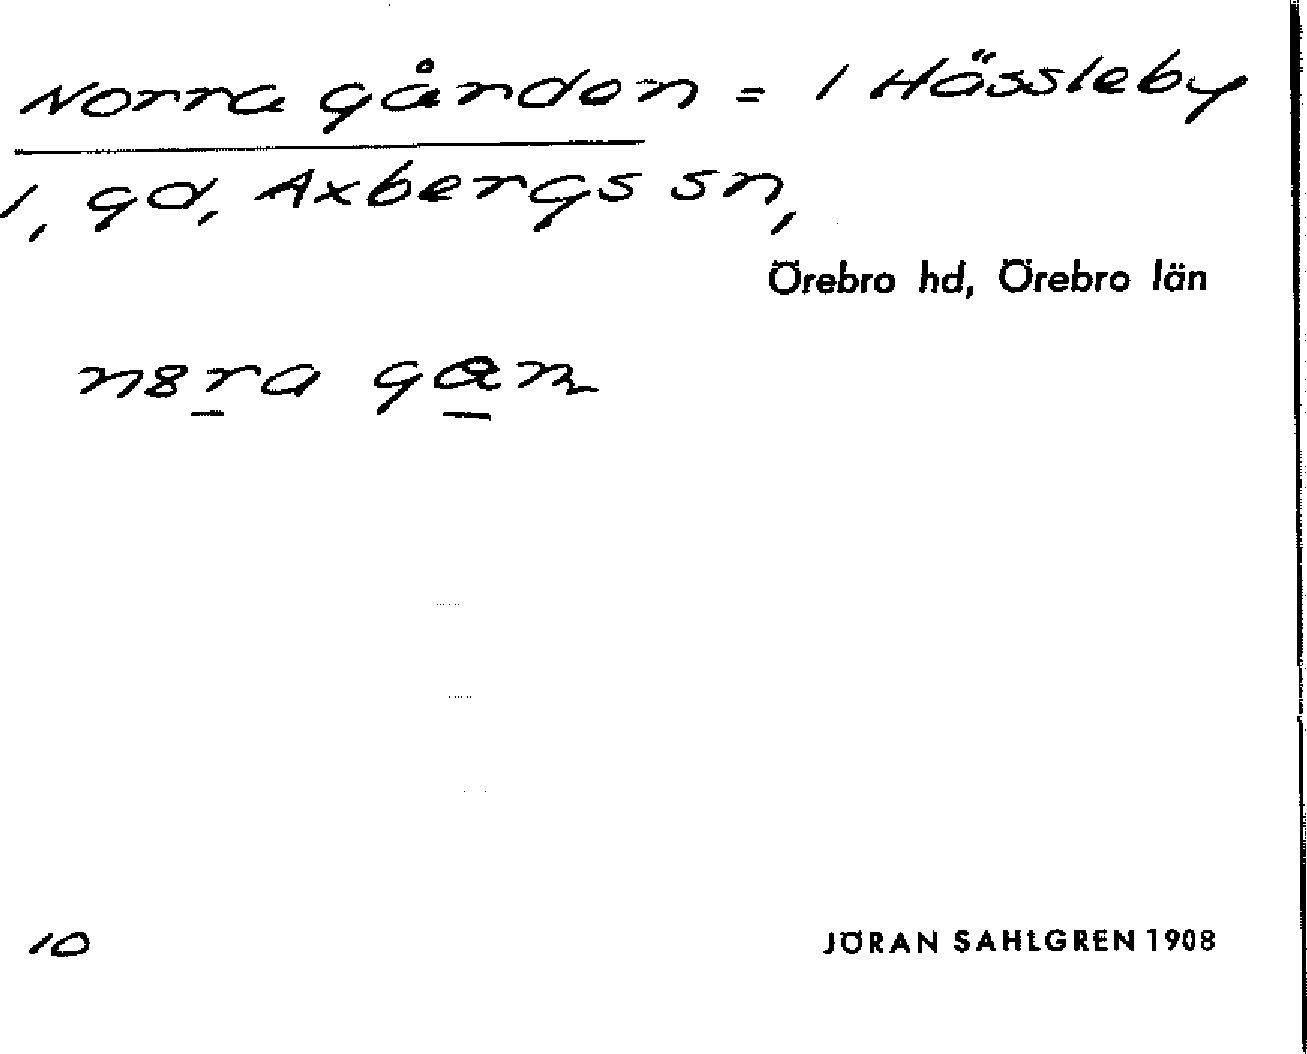 Norra gården = 1 Hässleby
1, gd, Axbergs sn,
Örebro hd, Örebro län
n8ra gan
10
JÖRAN SAHLGREN 1908